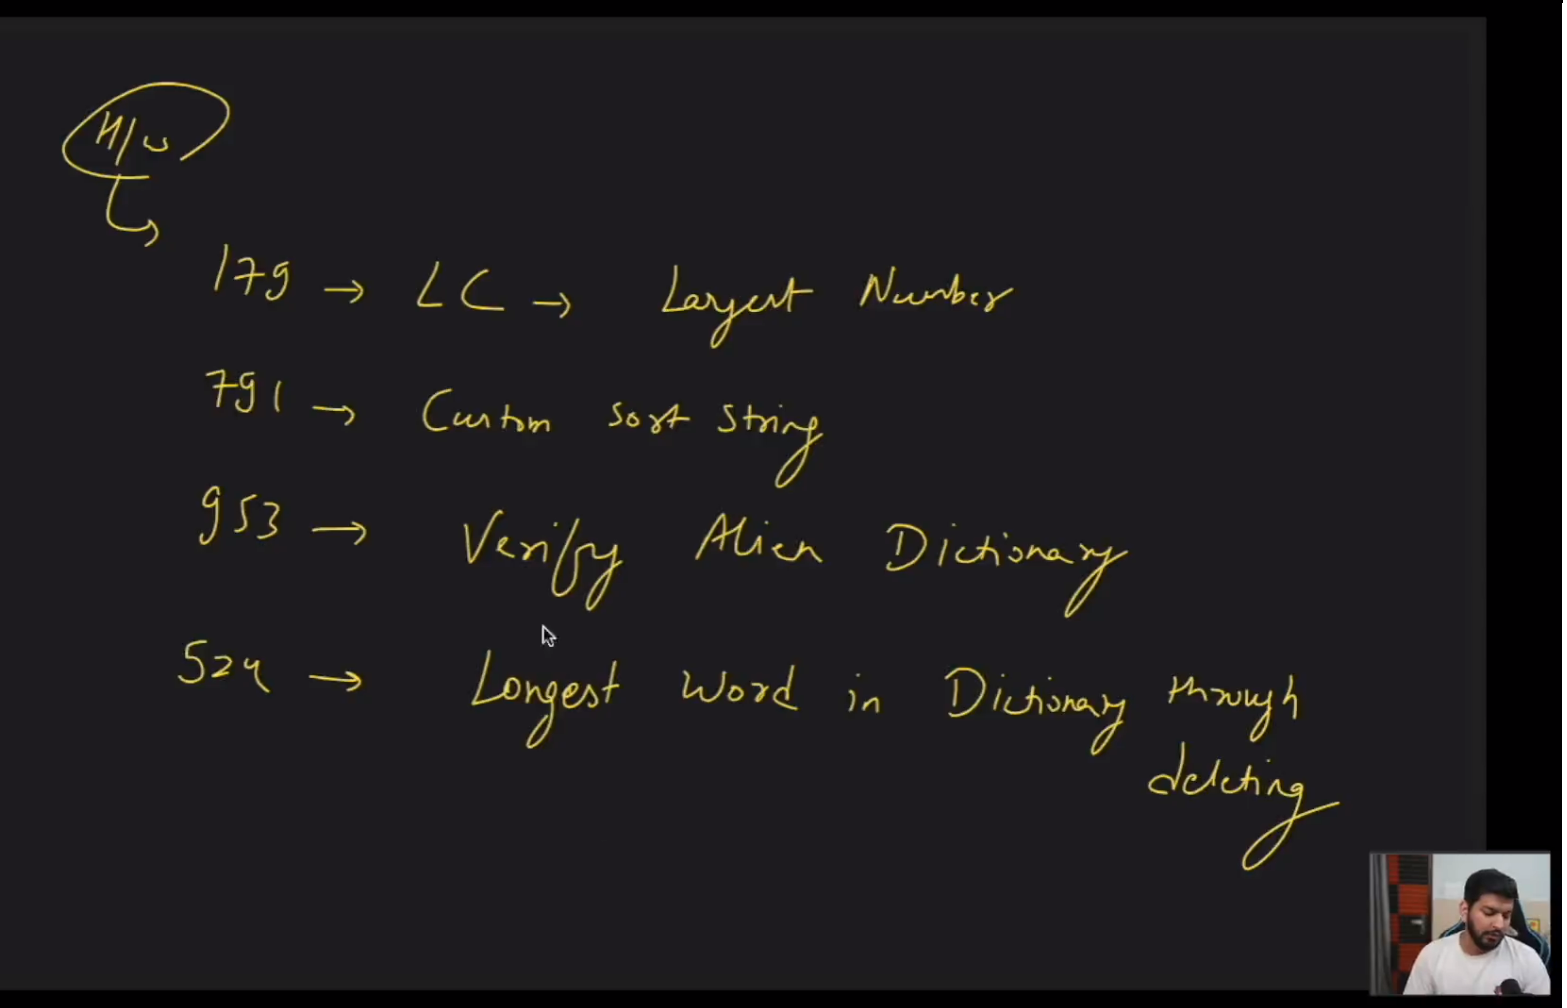 H/W
179 → LC → Largest Number
791 → Custom Sort String
953 → Verify Alien Dictionary
524 → Longest Word in Dictionary through
deleting